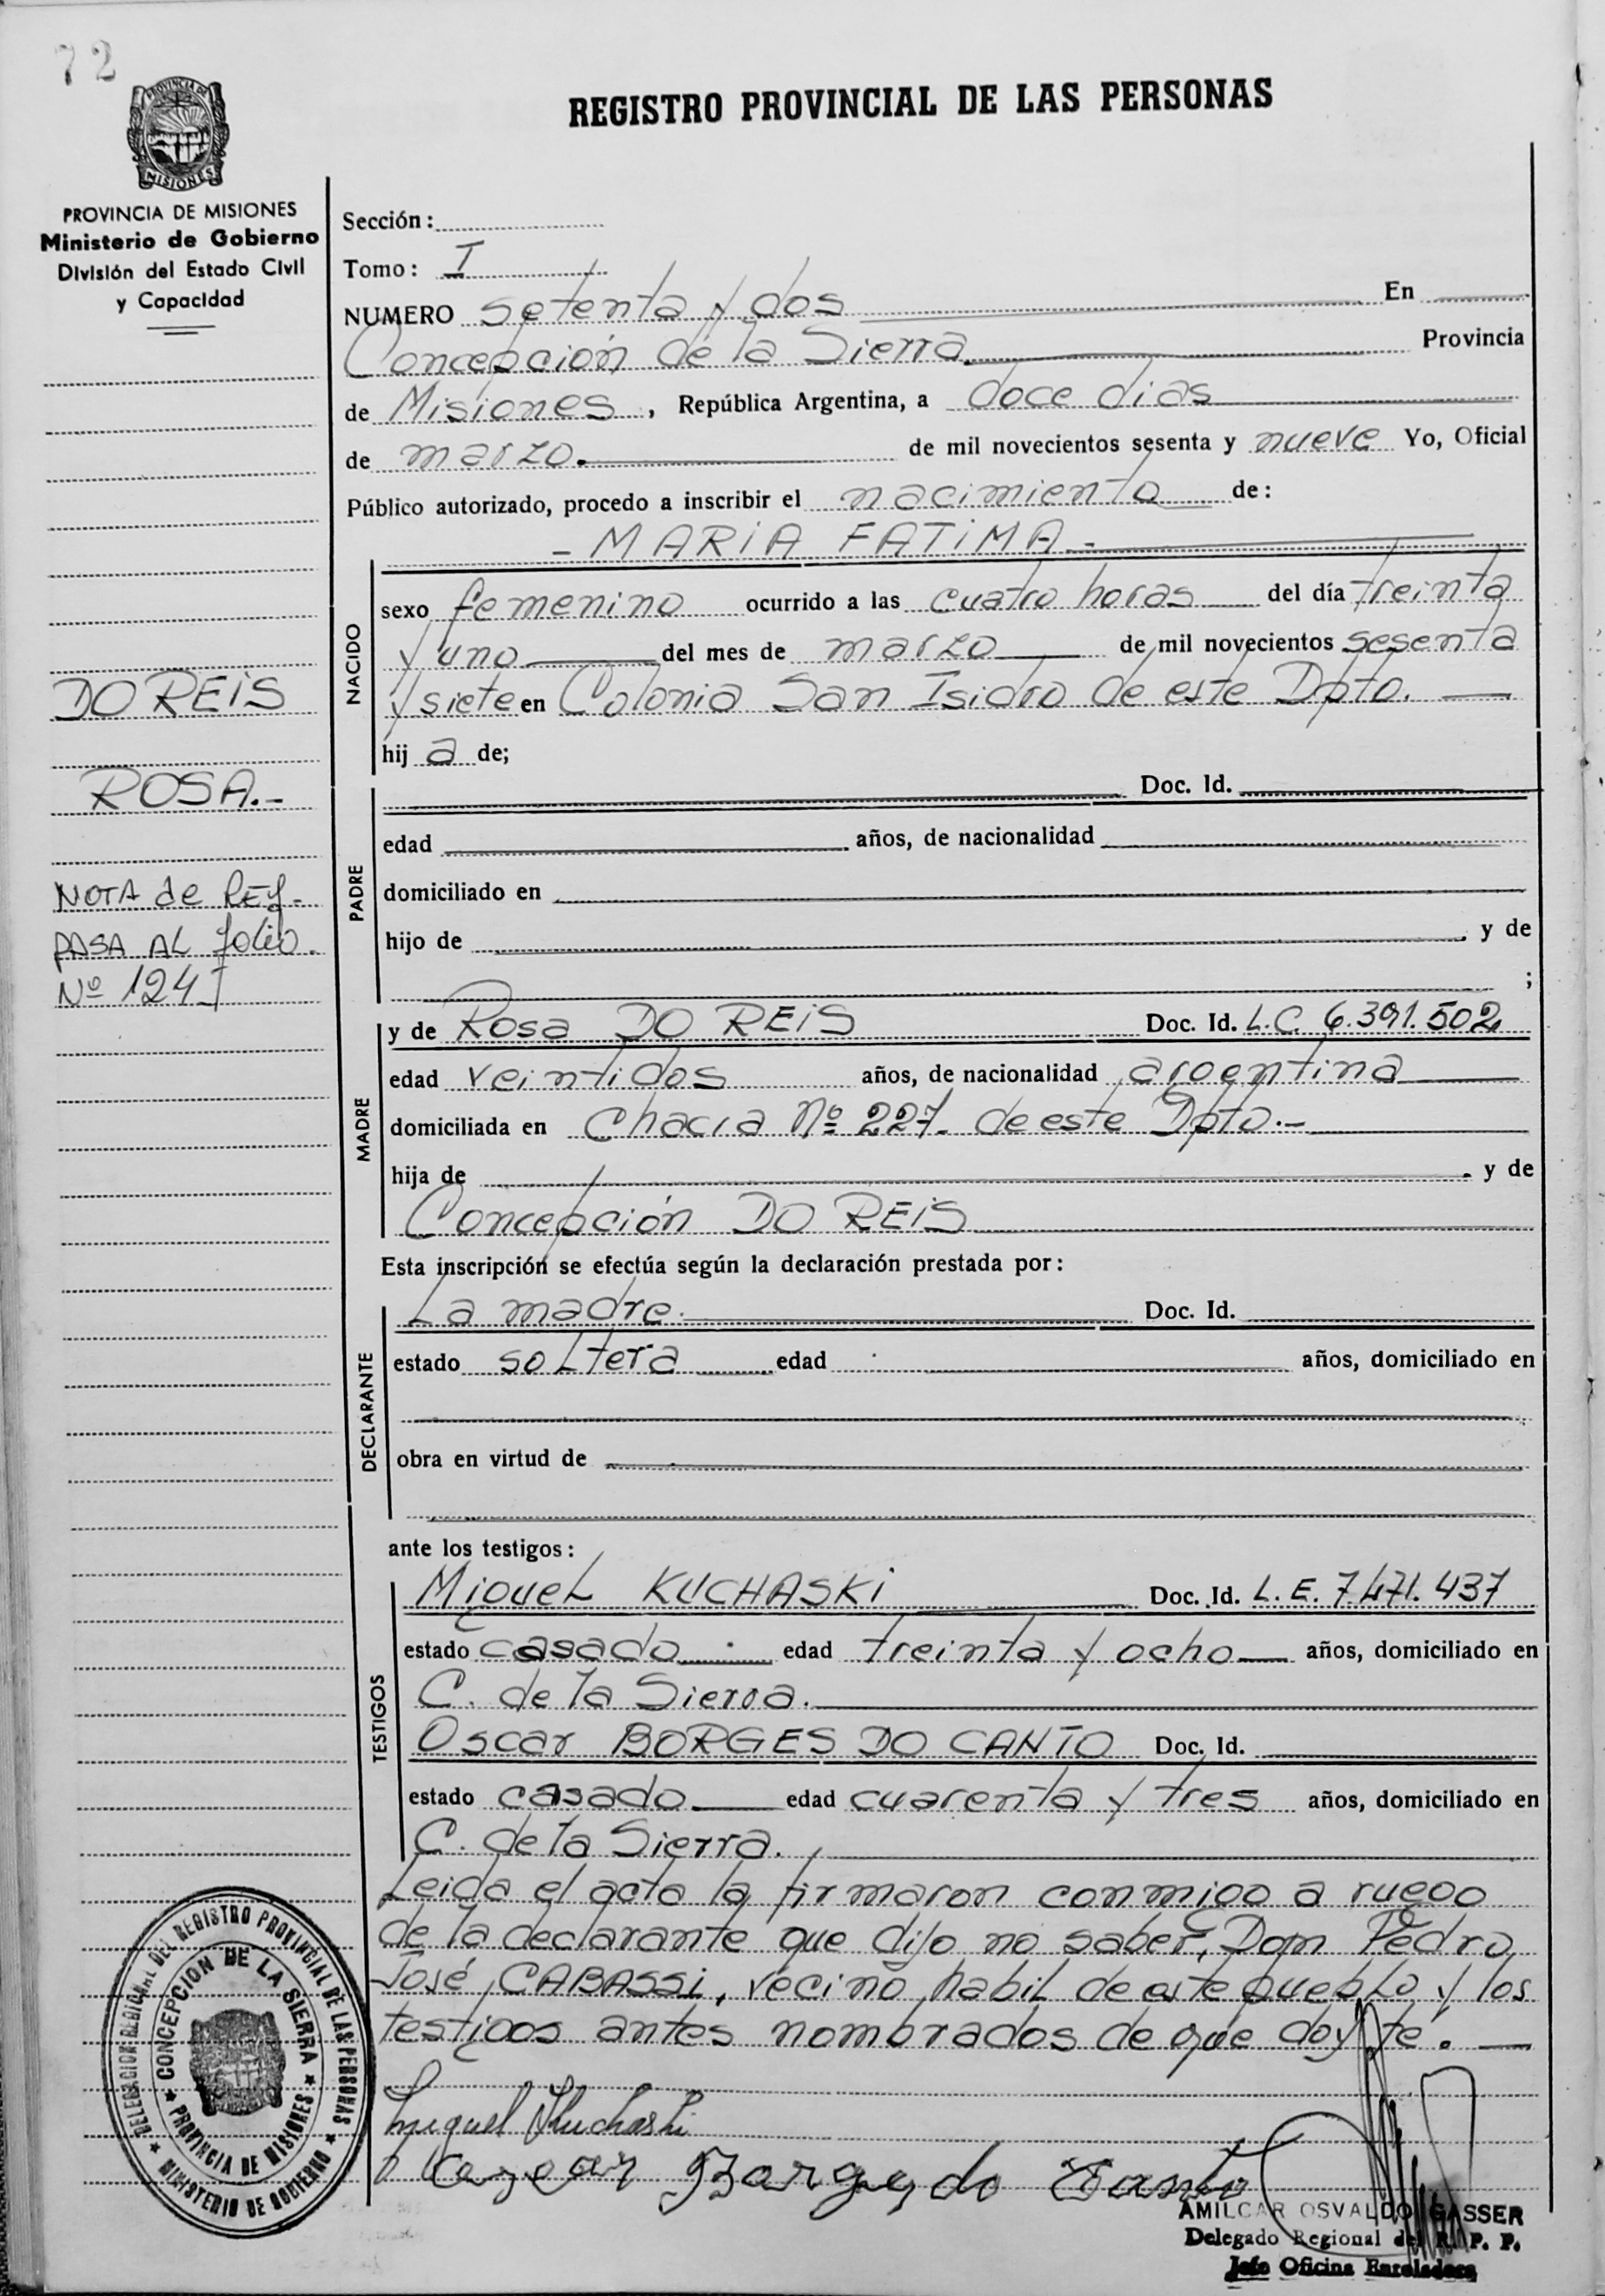 72
REGISTRO PROVINCIAL DE LAS PERSONAS
PROVINCIA DE MISIONES
PROVINCIA DE MISIONES
Ministerio de Gobierno
División del Estado Civil
y Capacidad
DO REIS
ROSA.-
NOTA de REf-
PASA AL folio.
Nº 124
Sección:
Tomo: I
NUMERO setenta y dos En
Concepción de la Sierra. Provincia
de Misiones, República Argentina, a doce dias
de marzo. de mil novecientos sesenta y nueve Yo, Oficial
Público autorizado, procedo a inscribir el nacimiento de:
- MARIA FATIMA.-
NACIDO
sexo femenino ocurrido a las cuatro horas del día treinta
y uno del mes de marzo de mil novecientos sesenta
y siete en Colonia San Isidro de este Dpto.
hij a de;
PADRE
Doc. Id.
edad años, de nacionalidad
domiciliado en
hijo de y de
;
MADRE
y de Rosa DO REIS Doc. Id. L.C. 6.391.502
edad veintidos años, de nacionalidad argentina
domiciliada en Chacra Nº 227- de este Dpto.-
hija de y de
Concepción DO REIS
Esta inscripción se efectúa según la declaración prestada por:
DECLARANTE
La madre. Doc. Id.
estado soltera edad años, domiciliado en
obra en virtud de
ante los testigos:
TESTIGOS
Miguel KUCHASKI Doc. Id. L. E. 7.471.437
estado casado edad treinta y ocho años, domiciliado en
C. de la Sierra.
Oscar BORGES DO CANTO Doc. Id.
estado casado edad cuarenta y tres años, domiciliado en
C. de la Sierra.
Leida el acta la firmaron conmigo a ruego
de la declarante que dijo no saber, Don Pedro
José CABASSI, vecino habil de este pueblo y los
testigos antes nombrados de que doy fe.
Miguel Kuchaski
Borges do Canto
DELEGACION REGIONAL DEL REGISTRO PROVINCIAL DE LAS PERSONAS
MINISTERIO DE GOBIERNO
CONCEPCION DE LA SIERRA
PROVINCIA DE MISIONES
AMILCAR OSVALDO GASSER
Delegado Regional del R. P. P.
Jefe Oficina